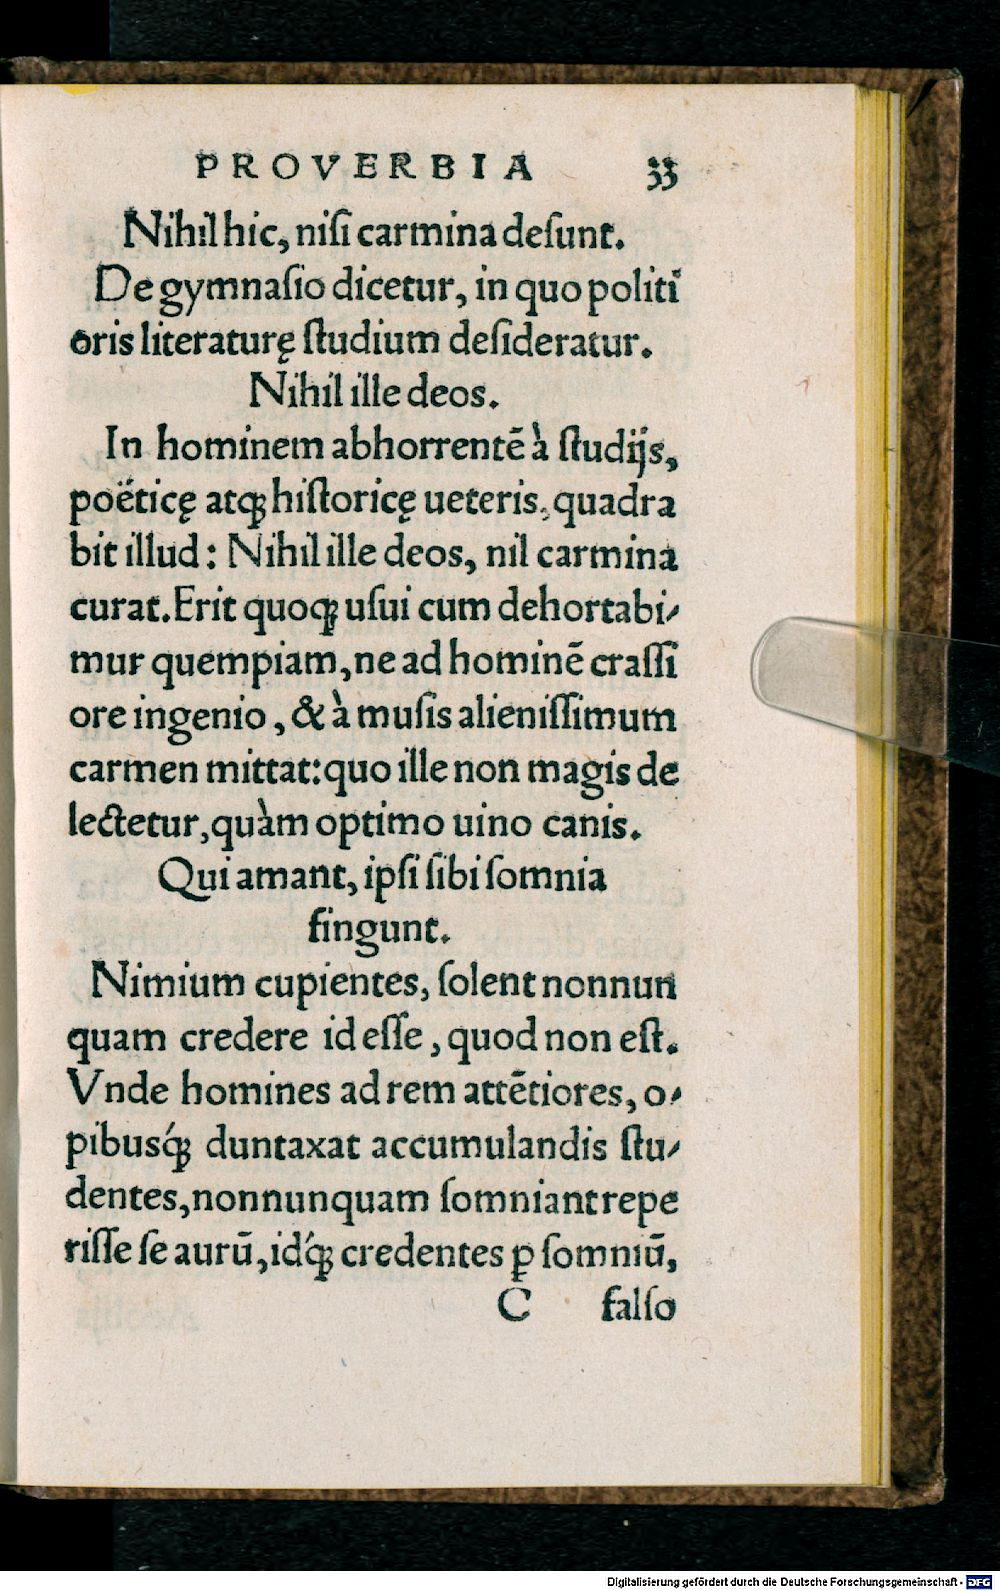 PROVERBIA 33
Nihil hic, niſi carmina deſunt.
De gymnaſio dicetur, in quo politi
oris literaturę ſtudium deſideratur.
Nihil ille deos.
In hominem abhorrentē à ſtudijs,
poëticę atqꝫ hiſtoricę ueteris, quadra
bit illud: Nihil ille deos, nil carmina
curat. Erit quoqꝫ uſui cum dehortabi⸗
mur quempiam, ne ad hominē craſſi
ore ingenio, & à muſis alieniſſimum
carmen mittat: quo ille non magis de
lectetur, quàm optimo uino canis.
Qui amant, ipſi ſibi ſomnia
fingunt.
Nimium cupientes, ſolent nonnun
quam credere id eſſe, quod non eſt.
Vnde homines ad rem attētiores, o⸗
pibusq́ꝫ duntaxat accumulandis ſtu⸗
dentes, nonnunquam ſomniant repe
riſſe ſe aurū, idq́ꝫ credentes ꝑ ſomniū,
C falſo
Digitalisierung gefördert durch die Deutsche Forschungsgemeinschaft - DFG